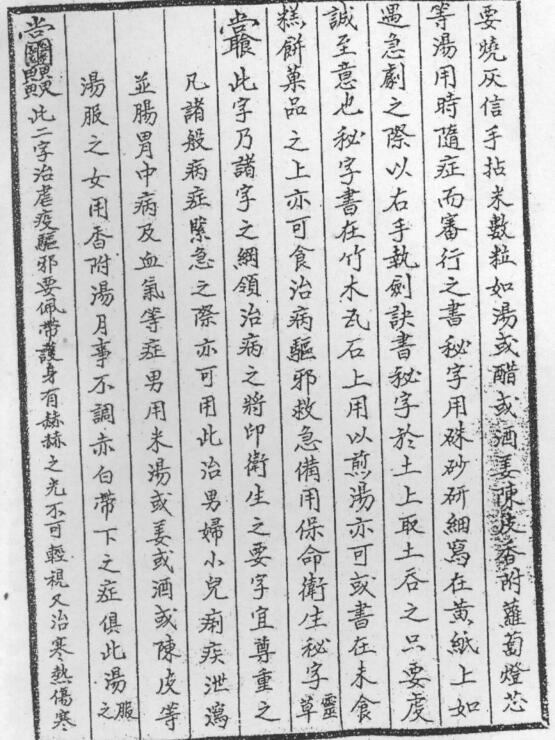 要燒灰信手拈米數粒如湯或醋或酒姜陳皮香附蘿蔔燈芯
等湯用時隨症而審行之書秘字用硃砂研細寫在黃紙上如
遇急劇之際以右手執劍訣書秘字於土上取土吞之只要虔
誠至意也秘字書在竹木瓦石上用以煎湯亦可或書在未食
糕餅菓品之上亦可食治病驅邪救急備用保命衛生秘字靈草
此字乃諸字之綱領治病之將印衛生之要字宜尊重之
凡諸般病症緊急之際亦可用此治男婦小兒痢疾泄瀉
並腸胃中病及血氣等症男用米湯或姜或酒或陳皮等
湯服之女用香附湯月事不調赤白帶下之症俱此湯服之
此二字治瘧疫驅邪要佩帶護身有赫赫之光不可輕視又治寒熱傷寒